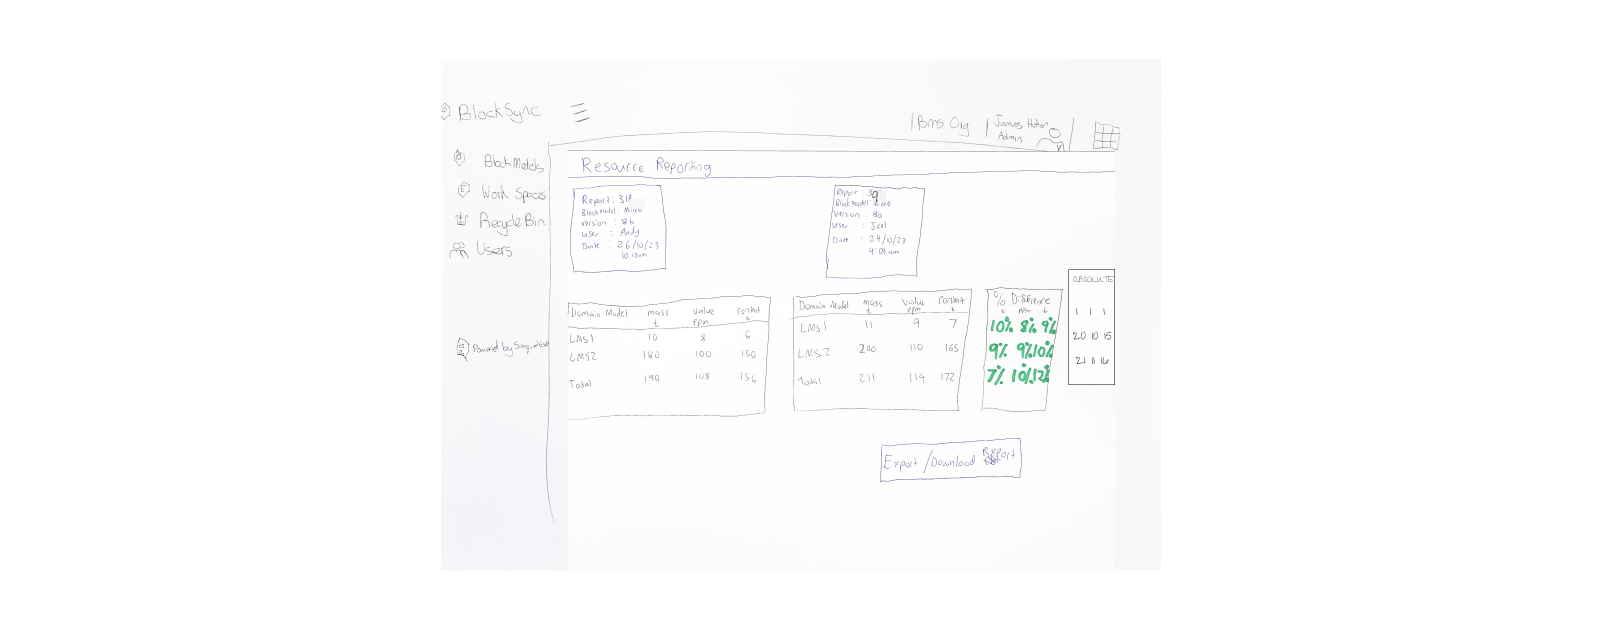 BlockSync
Bms Org
James Hutton
Admin
Block Models
Work Spaces
Recycle Bin
Users
Powered by
Resource Reporting
Report :
Block model :
Version : 8b
User : Andy
Date : 26/10/23
Report : 39
Block model :
Version : 8a
User : Joel
Date : 24/10/23
9:09 am
Domain Model mass value content
t ppm t
LMS1 10 8 6
LMS2 180 100 150
Total 190 108 156
Domain Model mass value content
t ppm t
LMS1 11 9 7
LMS2 200 110 165
Total 211 119 172
% Difference
t ppm t
10% 8% 9%
9% 9% 10%
7% 10% 12%
ABSOLUTE
1 1 1
20 10 15
21 11 16
Export /Download Report